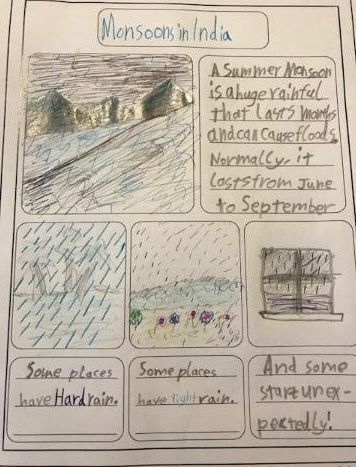 Monsoons in India
A Summer Monsoon
is a huge rainful
that lasts months
and can cause floods.
Normally, it
lasts from June
to September
Some places
have Hard rain.
Some places
have light rain.
And some
start unex-
pectedly!